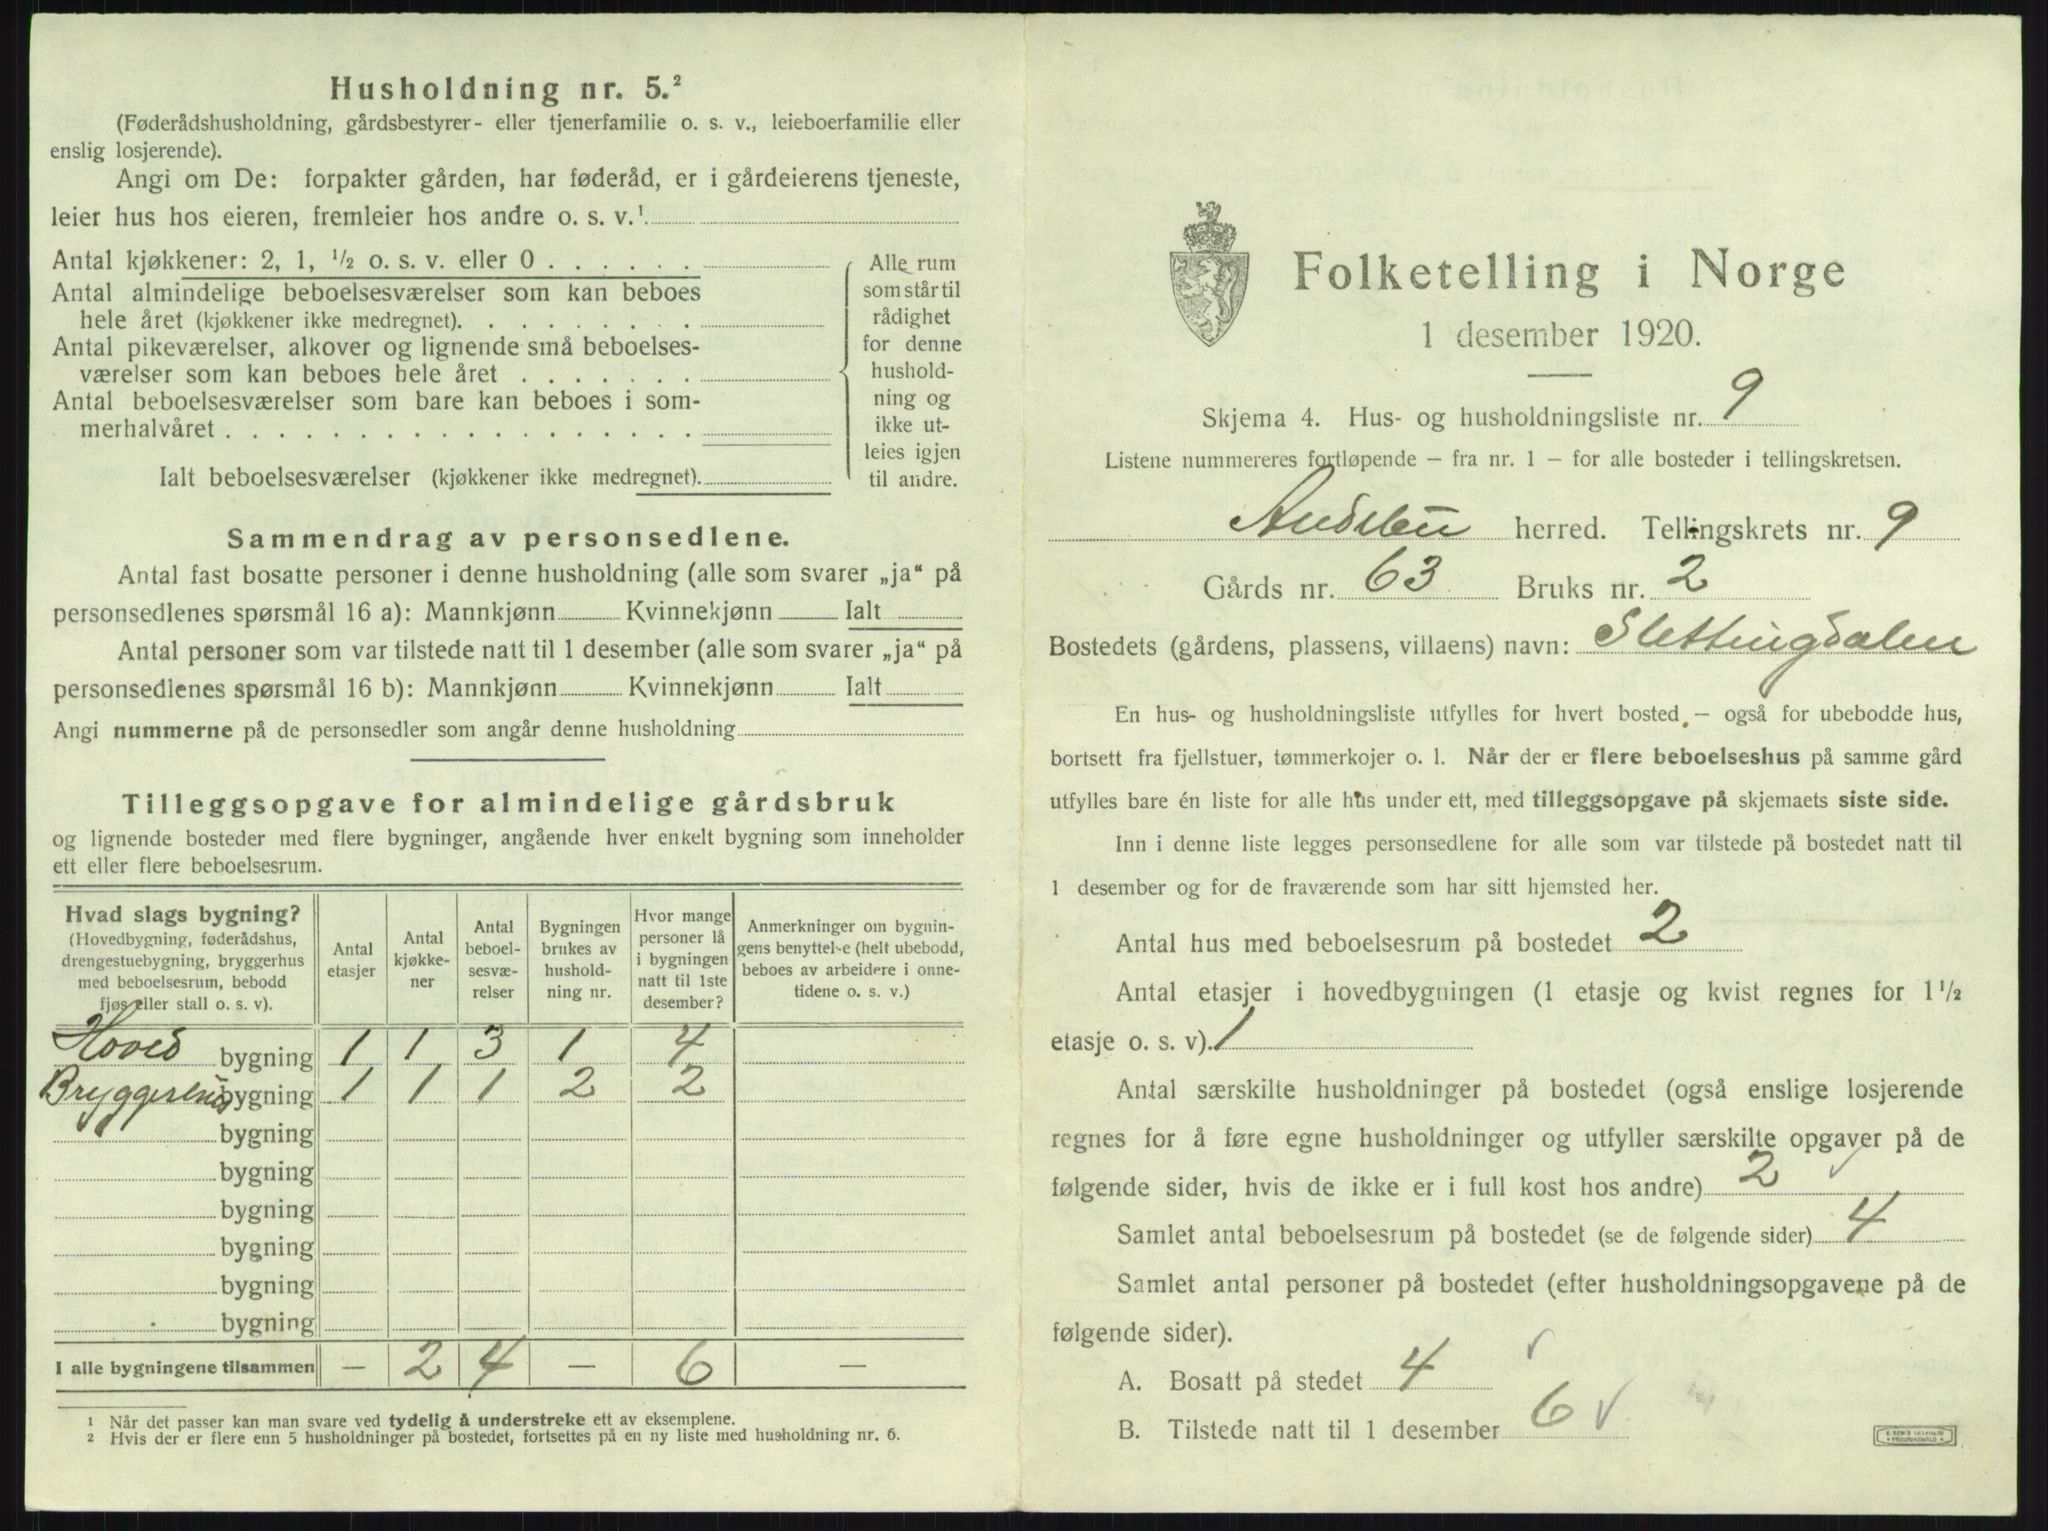 Husholdning nr. 5.²
(Føderådshusholdning, gårdsbestyrer- eller tjenerfamilie o. s. v., leieboerfamilie eller
enslig losjerende).
Angi om De: forpakter gården, har føderåd, er i gårdeierens tjeneste,
leier hus hos eieren, fremleier hos andre o. s. v.¹
Antal kjøkkener: 2, 1, ½ o. s. v. eller 0 . . . . . .
Antal almindelige beboelsesværelser som kan beboes
hele året (kjøkkener ikke medregnet). . . . . . . . .
Antal pikeværelser, alkover og lignende små beboelses-
værelser som kan beboes hele året . . . . . . .
Antal beboelsesværelser som bare kan beboes i som-
merhalvåret . . . . . . . . . . . . . . . . . .
Alle rum
som står til
rådighet
for denne
hushold-
ning og
ikke ut-
leies igjen
til andre.
Ialt beboelsesværelser (kjøkkener ikke medregnet).
Sammendrag av personsedlene.
Antal fast bosatte personer i denne husholdning (alle som svarer „ja“ på
personsedlenes spørsmål 16 a): Mannkjønn Kvinnekjønn Ialt
Antal personer som var tilstede natt til 1 desember (alle som svarer „ja“ på
personsedlenes spørsmål 16 b): Mannkjønn Kvinnekjønn Ialt
Angi nummerne på de personsedler som angår denne husholdning
Tilleggsopgave for almindelige gårdsbruk
og lignende bosteder med flere bygninger, angående hver enkelt bygning som inneholder
ett eller flere beboelsesrum.
Hvad slags bygning?
(Hovedbygning, føderådshus,
drengestuebygning, bryggerhus
med beboelsesrum, bebodd
fjøs eller stall o. s. v).
Antal
etasjer
Antal
kjøkke-
ner
Antal
beboel-
sesvæ-
relser
Bygningen
brukes av
hushold-
ning nr.
Hvor mange
personer lå
i bygningen
natt til 1ste
desember?
Anmerkninger om bygnin-
gens benyttelse (helt ubebodd,
beboes av arbeidere i onne-
tidene o. s. v.)
Hoved bygning 1 1 3 1 4
Bryggerhus bygning 1 1 1 2 2
bygning
bygning
bygning
bygning
bygning
bygning
I alle bygningene tilsammen — 2 4 — 6 —
¹ Når det passer kan man svare ved tydelig å understreke ett av eksemplene.
² Hvis der er flere enn 5 husholdninger på bostedet, fortsettes på en ny liste med husholdning nr. 6.
Folketelling i Norge
1 desember 1920.
Skjema 4. Hus- og husholdningsliste nr. 9
Listene nummereres fortløpende – fra nr. 1 – for alle bosteder i tellingskretsen.
Andebu herred. Tellingskrets nr. 9
Gårds nr. 63 Bruks nr. 2
Bostedets (gårdens, plassens, villaens) navn: Slettingdalen
En hus- og husholdningsliste utfylles for hvert bosted – også for ubebodde hus,
bortsett fra fjellstuer, tømmerkojer o. l. Når der er flere beboelseshus på samme gård
utfylles bare én liste for alle hus under ett, med tilleggsopgave på skjemaets siste side.
Inn i denne liste legges personsedlene for alle som var tilstede på bostedet natt til
1 desember og for de fraværende som har sitt hjemsted her.
Antal hus med beboelsesrum på bostedet 2
Antal etasjer i hovedbygningen (1 etasje og kvist regnes for 1½
etasje o. s. v). 1
Antal særskilte husholdninger på bostedet (også enslige losjerende
regnes for å føre egne husholdninger og utfyller særskilte opgaver på de
følgende sider, hvis de ikke er i full kost hos andre) 2
Samlet antal beboelsesrum på bostedet (se de følgende sider) 4
Samlet antal personer på bostedet (efter husholdningsopgavene på de
følgende sider).
A. Bosatt på stedet 4
B. Tilstede natt til 1 desember 6